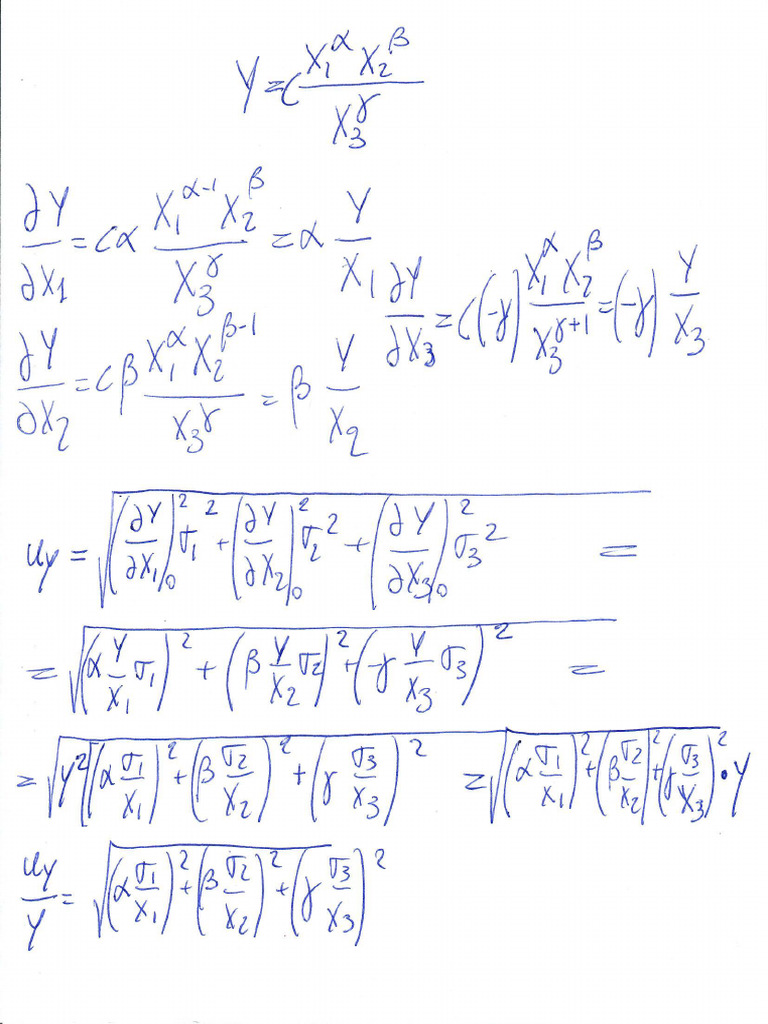 Y = C \frac{X_1^α X_2^β}{X_3^γ}
\frac{∂Y}{∂X_1} = Cα \frac{X_1^{α-1} X_2^β}{X_3^γ} = α \frac{Y}{X_1}
\frac{∂Y}{∂X_3} = C(-γ) \frac{X_1^α X_2^β}{X_3^{γ+1}} = (-γ) \frac{Y}{X_3}
\frac{∂Y}{∂X_2} = Cβ \frac{X_1^α X_2^{β-1}}{X_3^γ} = β \frac{Y}{X_2}
u_y = \sqrt{(\frac{∂Y}{∂X_1})_0^2 σ_1^2 + (\frac{∂Y}{∂X_2})_0^2 σ_2^2 + (\frac{∂Y}{∂X_3})_0^2 σ_3^2} =
= \sqrt{(α \frac{Y}{X_1} σ_1)^2 + (β \frac{Y}{X_2} σ_2)^2 + (-γ \frac{Y}{X_3} σ_3)^2} =
= \sqrt{Y^2 [(α \frac{σ_1}{X_1})^2 + (β \frac{σ_2}{X_2})^2 + (γ \frac{σ_3}{X_3})^2} = \sqrt{(α \frac{σ_1}{X_1})^2 + (β \frac{σ_2}{X_2})^2 + (γ \frac{σ_3}{X_3})^2} · Y
\frac{u_y}{Y} = \sqrt{(α \frac{σ_1}{X_1})^2 + (β \frac{σ_2}{X_2})^2 + (γ \frac{σ_3}{X_3})^2}